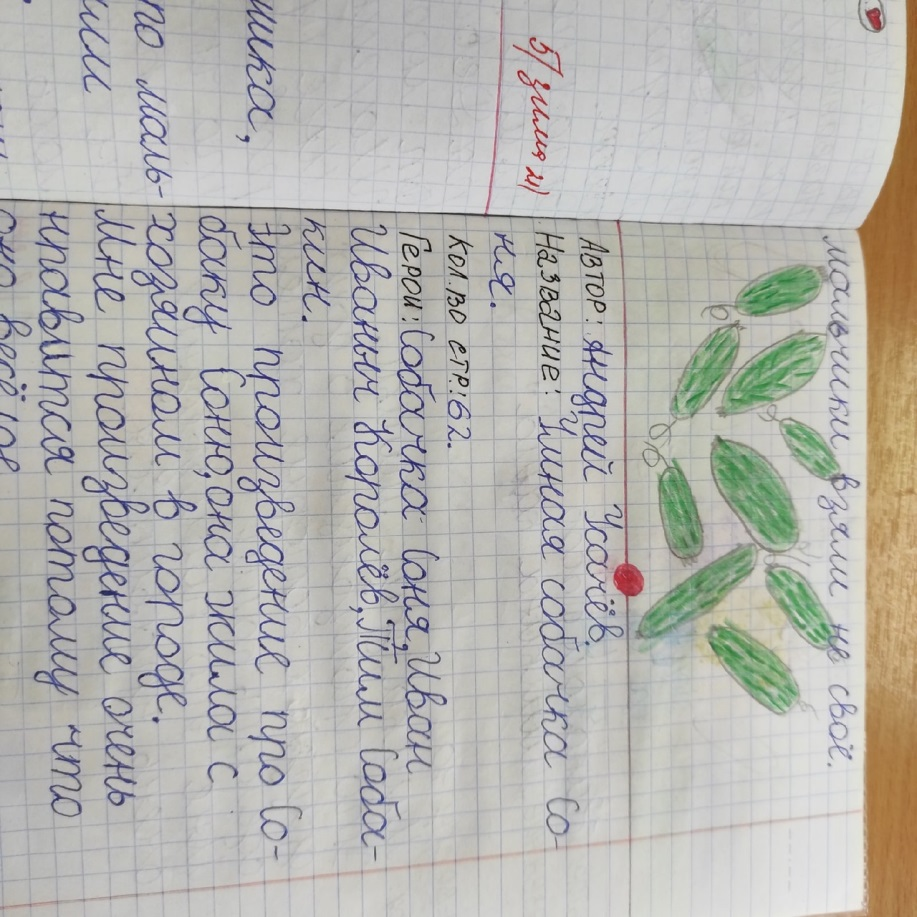 шка,
по маль-
ими
5/ зимия м)
мальчики взяли не своё.
Автор: Андрей Усачёв.
Название: Умная собачка Со-
ня.
Кол.во стр.: 62.
Герои: Собачка Соня, Иван
Иваныч Королёв, Тим Соба-
кин.
Это произведение про Со-
баку Соню, она жила с
хозяином в городе.
Мне произведение очень
нравится потому что
оно весёлое